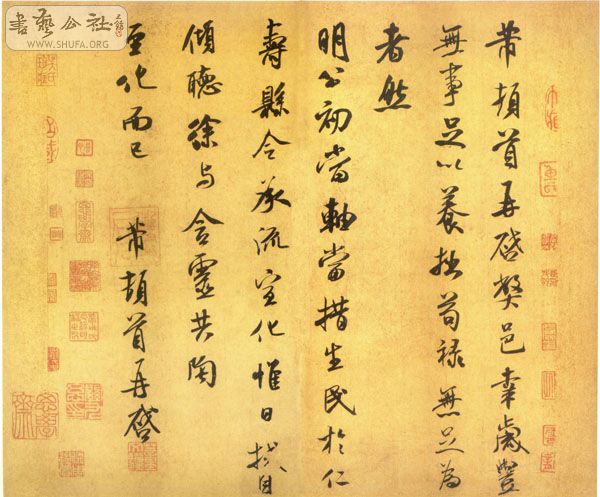 芾頓首再啓弊邑幸歲豐
無事足以養拙苟祿無足為
者然
明公初當軸當措生民於仁
壽縣令承流宣化惟日拭目
傾聽徐与含靈共陶
至化而已 芾頓首再啓
書藝公社
WWW.SHUFA.ORG